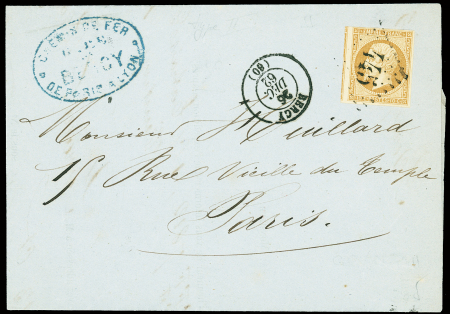 CHEMIN DE FER
BERCY
DE PARIS A LYON
BERCY
26
DEC.
62
(60)
Monsieur Huillard
15 Rue Vieille du Temple
Paris.